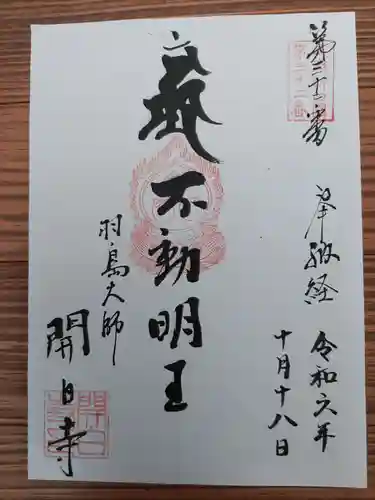 第三十二番
奉納経
令和六年
十月十八日
不動明王
羽島大師
開白寺